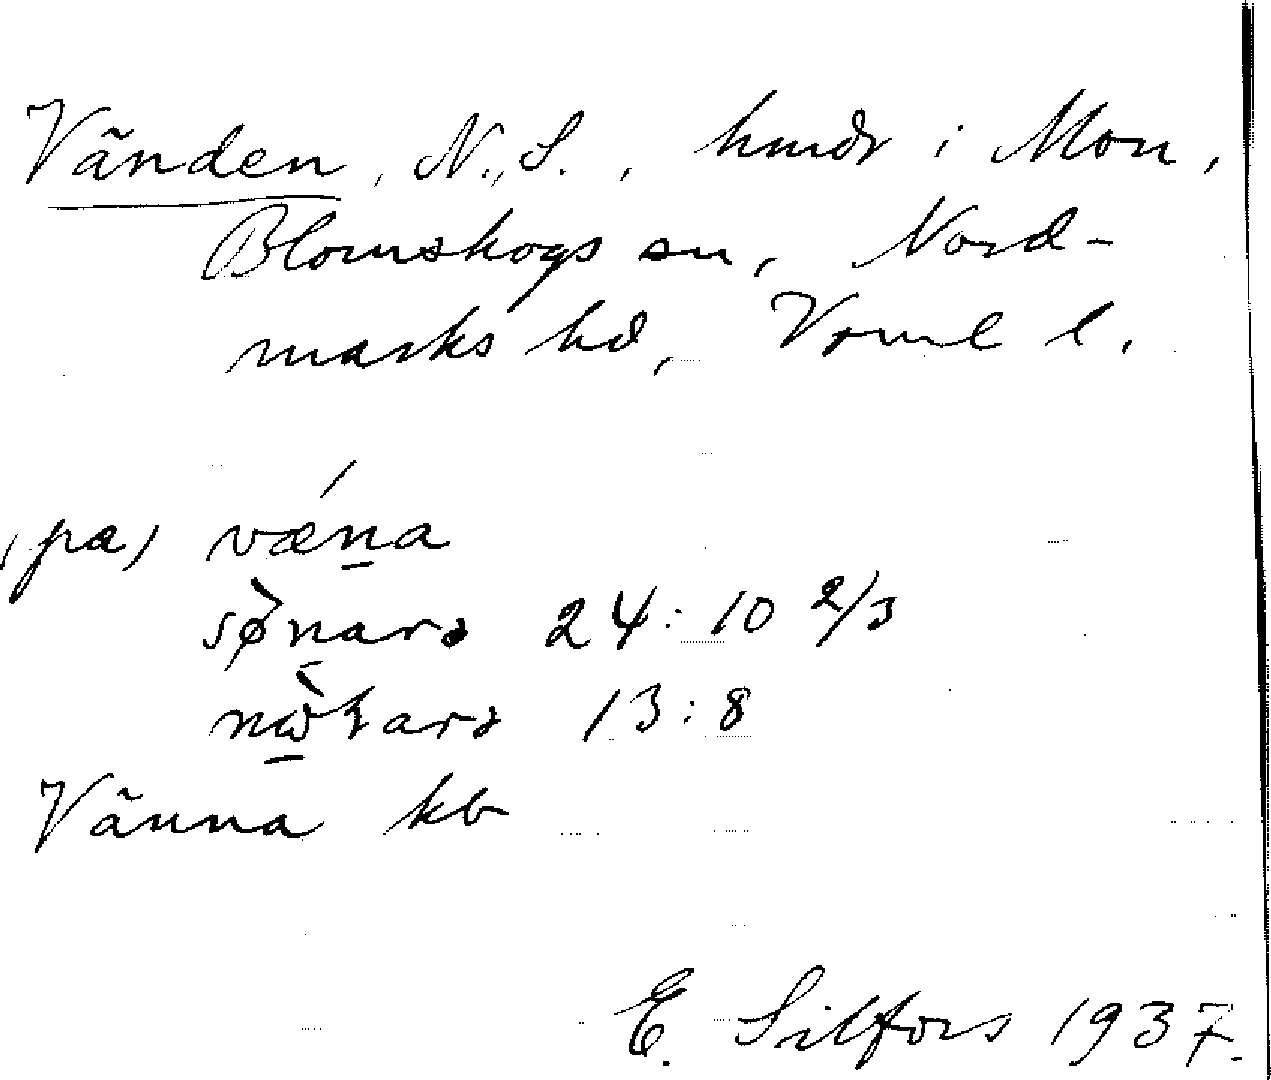 Vänden, N., S., hmdr i Mon,
Blomskogs sn, Nord-
marks hd, Vrml l.
(på) væ̀na
sø̀nara 24:10 2/3
nòlara 13:8
Vänna kb
E. Silfors 1937.